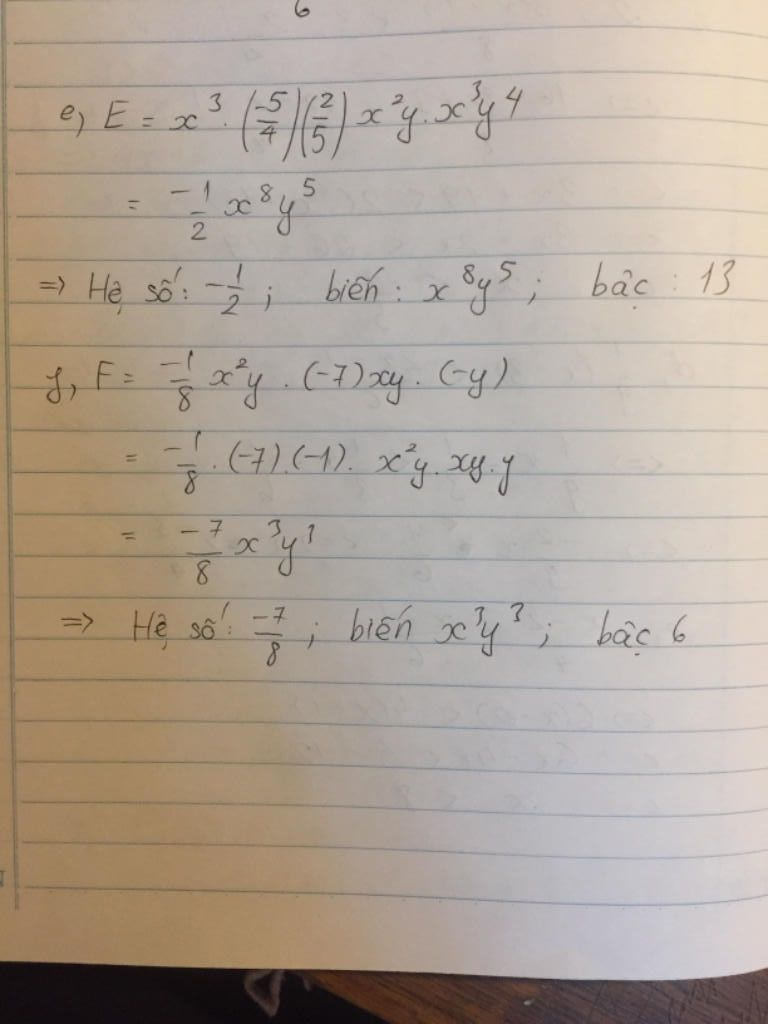 6
e, E = x³. (-5/4)(2/5) x²y . x³y⁴
= -1/2 x⁸y⁵
=> Hệ số: -1/2 ; biến : x⁸y⁵ ; bậc : 13
f, F = -1/8 x²y . (-7)xy . (-y)
= -1/8 . (-7).(-1). x²y . xy . y
= -7/8 x³y³
=> Hệ số: -7/8 ; biến x³y³ ; bậc 6